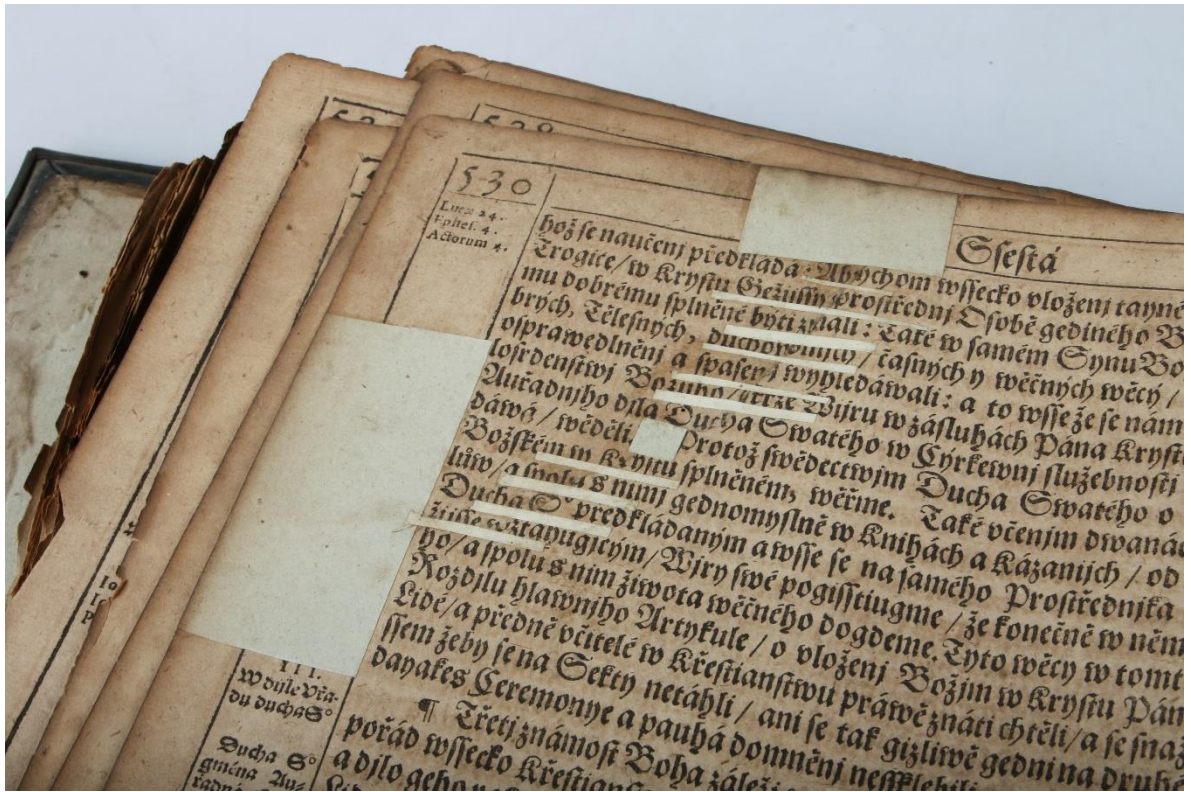 530
Lucæ 24.
Ephes. 4.
Actorum 4.
Ssestá
hož se naučenj předkládá: Abychom wssecko vloženj tayné
Trogice/ w Krystu Gežussy prostřednj Osobě gediného B
mu dobrému splněné býti znali: Také w samém Synu Bo
brých, Tělesných, duchownjch/ časných y wěčných wěcý/
osprawedlněnj a spasenj wyhledáwali: a to wsse že se nám
losrdenstwj Božjho/ skrze Wjru w záslubách Pána Krysta
Auřadnjho djla Ducha Swatého w Cýrkewnj služebnosti
dáwá/ wěděli. Protož swědectwjm Ducha Swatého o
Božském w Krystu splněném, wěřme. Také včenjm dwanác
lůw/ a spolu s nimj gednomyslně w Knihách a Kázanjch/ od
Ducha S° předkládaným a wsse se na samého Prostřednjka
wztahugjcým/ Wjry swé pogisstiugme/ že konečně w něm
ho/ a spolu s njm žiwota wěčného dogdeme. Tyto wěcy w tomt
Rozdjlu hlawnjho Artykule/ o vloženj Božjm w Krystu Pán
Lidé/ a předně včitelé w Křestianstwu práwě znáti chtěli/ a se snaž
ssem žeby se na Sekty netáhli/ ani se tak gizliwě gedni na druhé
dayakés Ceremonye a pauhá domněnj nessklebili
¶ Třetj známost Boha záležj
pořád wssecko Křestian
a djlo geho
III.
W djle Vřa-
du ducha S°
Ducha S°
gména Au-
řadnj